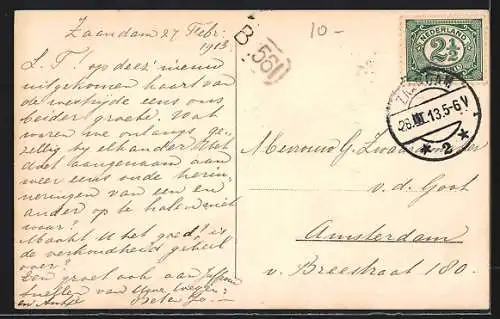 Zaandam 27 Febr.
1913.
L. T! op deez' nieuw
uitgekomen kaart van
de westzijde eens ons
beider groete. Wat
waren we onlangs ge-
zellig bij elkander. Wat
doet aangenaam aan
weer eens oude herin-
neringen van een en
ander op te halen niet
waar?
Maakt U het goed? is
de verkoudheid geheel
over?
Een groet ook aan Juffrouw
van Uwe toegen:
en Antje
10-
B.
56
NEDERLAND
2½
CENT
ZAANDAM
28.II.13.5-6V
* 2 *
Mevrouw G.
v. d. Goot
Amsterdam
v. Breestraat 180.